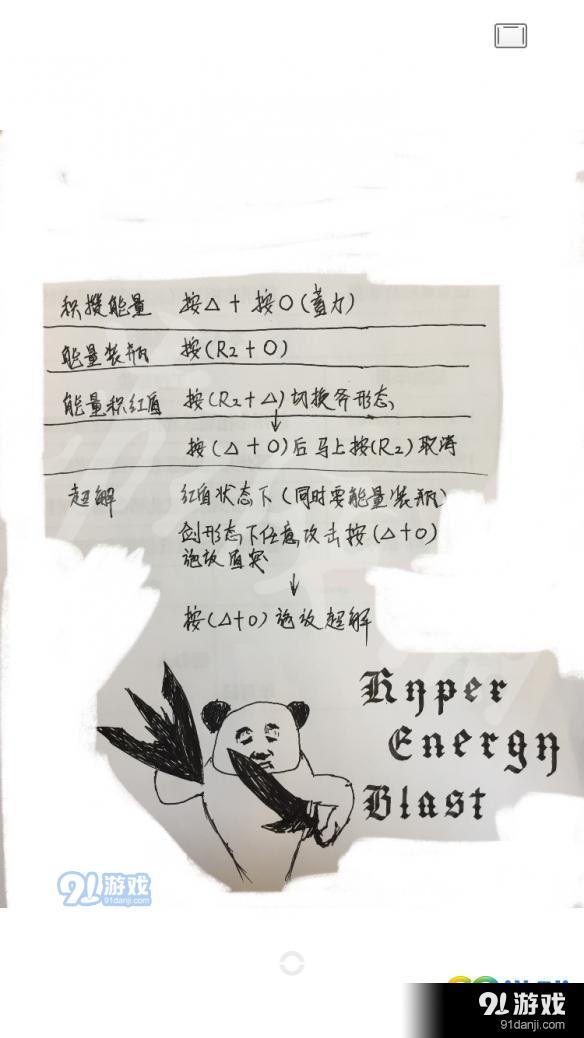 积攒能量 按△ + 按O(蓄力)
能量装瓶 按(R2+O)
能量积红盾 按(R2+△)切换斧形态
↓
按(△+O)后马上按(R2)取消
超解 红盾状态下(同时要能量装瓶)
剑形态下任意攻击按(△+O)
施放盾突
↓
按(△+O)施放超解
Hyper
Energy
Blast
91游戏
91danji.com
91游戏
91danji.com